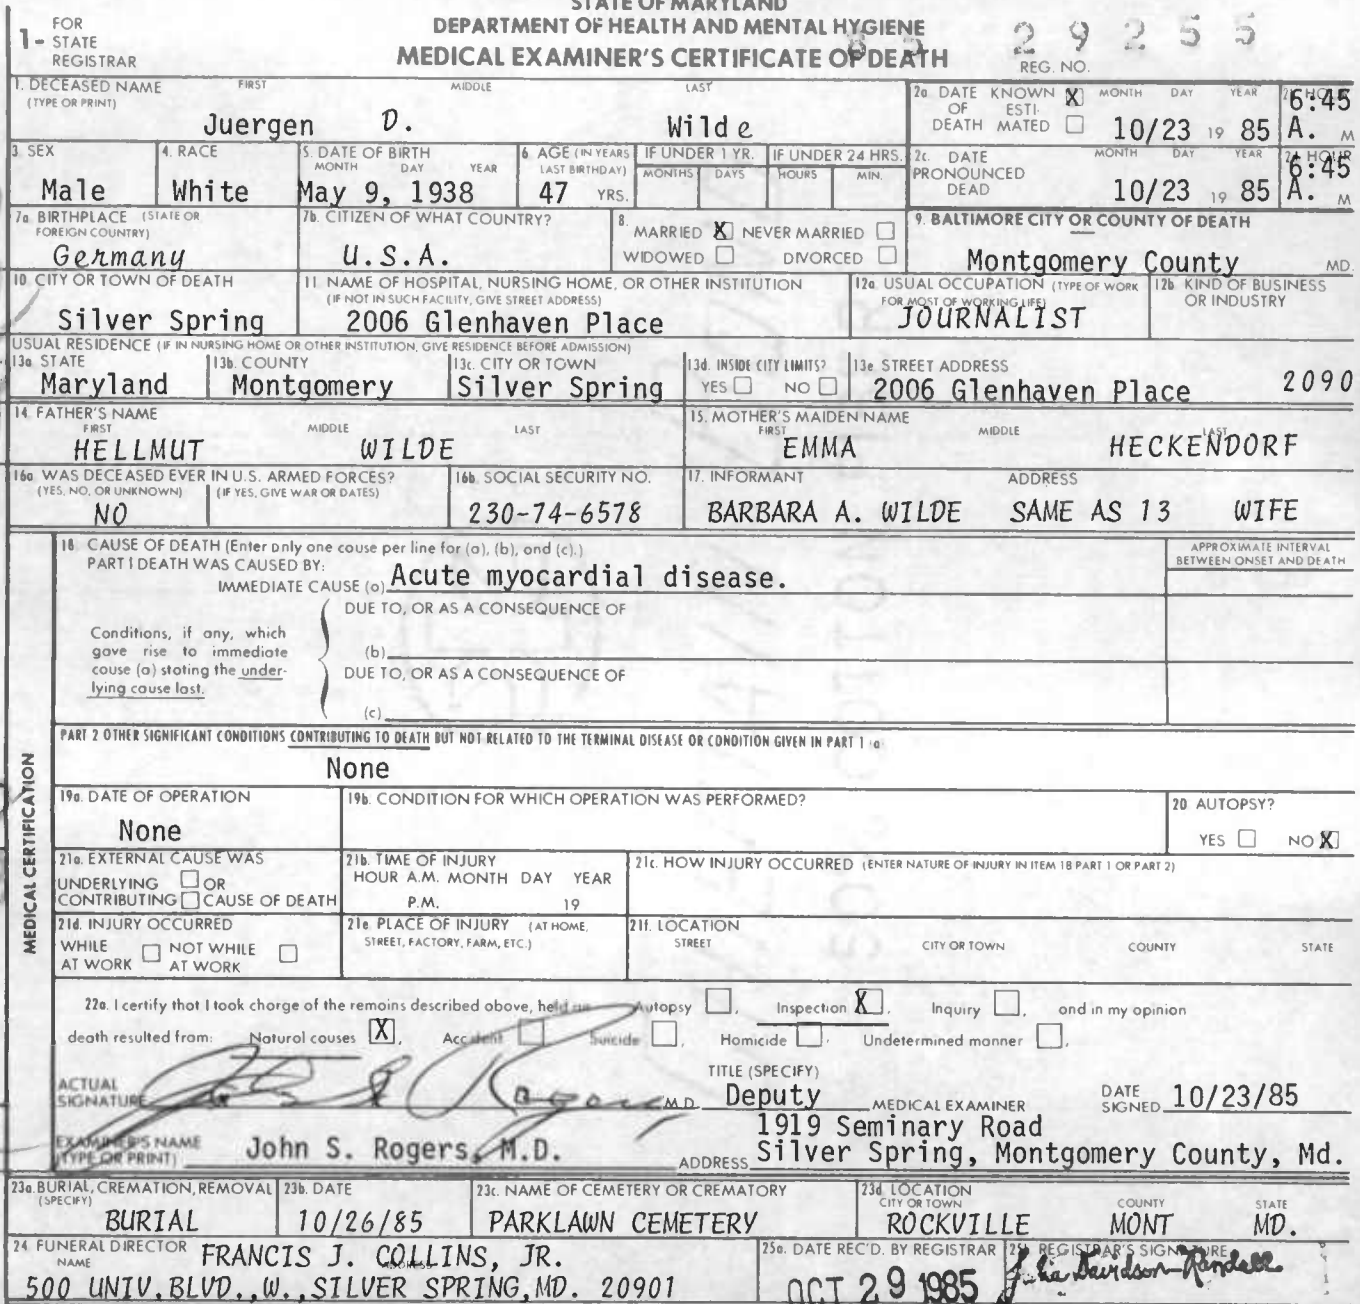 STATE OF MARYLAND
DEPARTMENT OF HEALTH AND MENTAL HYGIENE
MEDICAL EXAMINER'S CERTIFICATE OF DEATH
1- FOR STATE REGISTRAR
85 29255
REG. NO.
1. DECEASED NAME (TYPE OR PRINT) FIRST MIDDLE LAST
Juergen D. Wilde
2a. DATE OF DEATH KNOWN X ESTIMATED MONTH DAY YEAR HOUR
10/23 19 85 6:45 A. M
3. SEX
Male
4. RACE
White
5. DATE OF BIRTH MONTH DAY YEAR
May 9, 1938
6. AGE (IN YEARS LAST BIRTHDAY)
47 YRS.
IF UNDER 1 YR. MONTHS DAYS
IF UNDER 24 HRS. HOURS MIN.
2c. DATE PRONOUNCED DEAD MONTH DAY YEAR HOUR
10/23 19 85 6:45 A. M
7a. BIRTHPLACE (STATE OR FOREIGN COUNTRY)
Germany
7b. CITIZEN OF WHAT COUNTRY?
U.S.A.
8. MARRIED X NEVER MARRIED
WIDOWED DIVORCED
9. BALTIMORE CITY OR COUNTY OF DEATH
Montgomery County MD.
10. CITY OR TOWN OF DEATH
Silver Spring
11. NAME OF HOSPITAL, NURSING HOME, OR OTHER INSTITUTION
(IF NOT IN SUCH FACILITY, GIVE STREET ADDRESS)
2006 Glenhaven Place
12a. USUAL OCCUPATION (TYPE OF WORK FOR MOST OF WORKING LIFE)
JOURNALIST
12b. KIND OF BUSINESS OR INDUSTRY
USUAL RESIDENCE (IF IN NURSING HOME OR OTHER INSTITUTION, GIVE RESIDENCE BEFORE ADMISSION)
13a. STATE
Maryland
13b. COUNTY
Montgomery
13c. CITY OR TOWN
Silver Spring
13d. INSIDE CITY LIMITS?
YES NO
13e. STREET ADDRESS
2006 Glenhaven Place 2090
14. FATHER'S NAME FIRST MIDDLE LAST
HELLMUT WILDE
15. MOTHER'S MAIDEN NAME FIRST MIDDLE LAST
EMMA HECKENDORF
16a. WAS DECEASED EVER IN U.S. ARMED FORCES?
(YES, NO, OR UNKNOWN) (IF YES, GIVE WAR OR DATES)
NO
16b. SOCIAL SECURITY NO.
230-74-6578
17. INFORMANT ADDRESS
BARBARA A. WILDE SAME AS 13 WIFE
MEDICAL CERTIFICATION
18. CAUSE OF DEATH (Enter only one cause per line for (a), (b), and (c).)
PART I DEATH WAS CAUSED BY:
APPROXIMATE INTERVAL BETWEEN ONSET AND DEATH
IMMEDIATE CAUSE (a) Acute myocardial disease.
DUE TO, OR AS A CONSEQUENCE OF
Conditions, if any, which gave rise to immediate cause (a) stating the underlying cause last.
(b)
DUE TO, OR AS A CONSEQUENCE OF
(c)
PART 2 OTHER SIGNIFICANT CONDITIONS CONTRIBUTING TO DEATH BUT NOT RELATED TO THE TERMINAL DISEASE OR CONDITION GIVEN IN PART 1 a
None
19a. DATE OF OPERATION
None
19b. CONDITION FOR WHICH OPERATION WAS PERFORMED?
20 AUTOPSY?
YES NO X
21a. EXTERNAL CAUSE WAS
UNDERLYING OR
CONTRIBUTING CAUSE OF DEATH
21b. TIME OF INJURY
HOUR A.M. MONTH DAY YEAR
P.M. 19
21c. HOW INJURY OCCURRED (ENTER NATURE OF INJURY IN ITEM 18 PART 1 OR PART 2)
21d. INJURY OCCURRED
WHILE AT WORK NOT WHILE AT WORK
21e. PLACE OF INJURY (AT HOME, STREET, FACTORY, FARM, ETC.)
21f. LOCATION
STREET CITY OR TOWN COUNTY STATE
22a. I certify that I took charge of the remains described above, held an Autopsy , Inspection X , Inquiry , and in my opinion
death resulted from: Natural causes X , Accident , Suicide , Homicide , Undetermined manner ,
ACTUAL SIGNATURE John S. Rogers M.D.
TITLE (SPECIFY)
Deputy MEDICAL EXAMINER
DATE SIGNED 10/23/85
EXAMINER'S NAME (TYPE OR PRINT) John S. Rogers, M.D.
1919 Seminary Road
ADDRESS Silver Spring, Montgomery County, Md.
23a. BURIAL, CREMATION, REMOVAL (SPECIFY)
BURIAL
23b. DATE
10/26/85
23c. NAME OF CEMETERY OR CREMATORY
PARKLAWN CEMETERY
23d. LOCATION CITY OR TOWN COUNTY STATE
ROCKVILLE MONT MD.
24 FUNERAL DIRECTOR
NAME FRANCIS J. COLLINS, JR.
ADDRESS
500 UNIV. BLVD., W., SILVER SPRING, MD. 20901
25a. DATE REC'D. BY REGISTRAR
OCT 29 1985
25b. REGISTRAR'S SIGNATURE
Julia Davidson-Randall